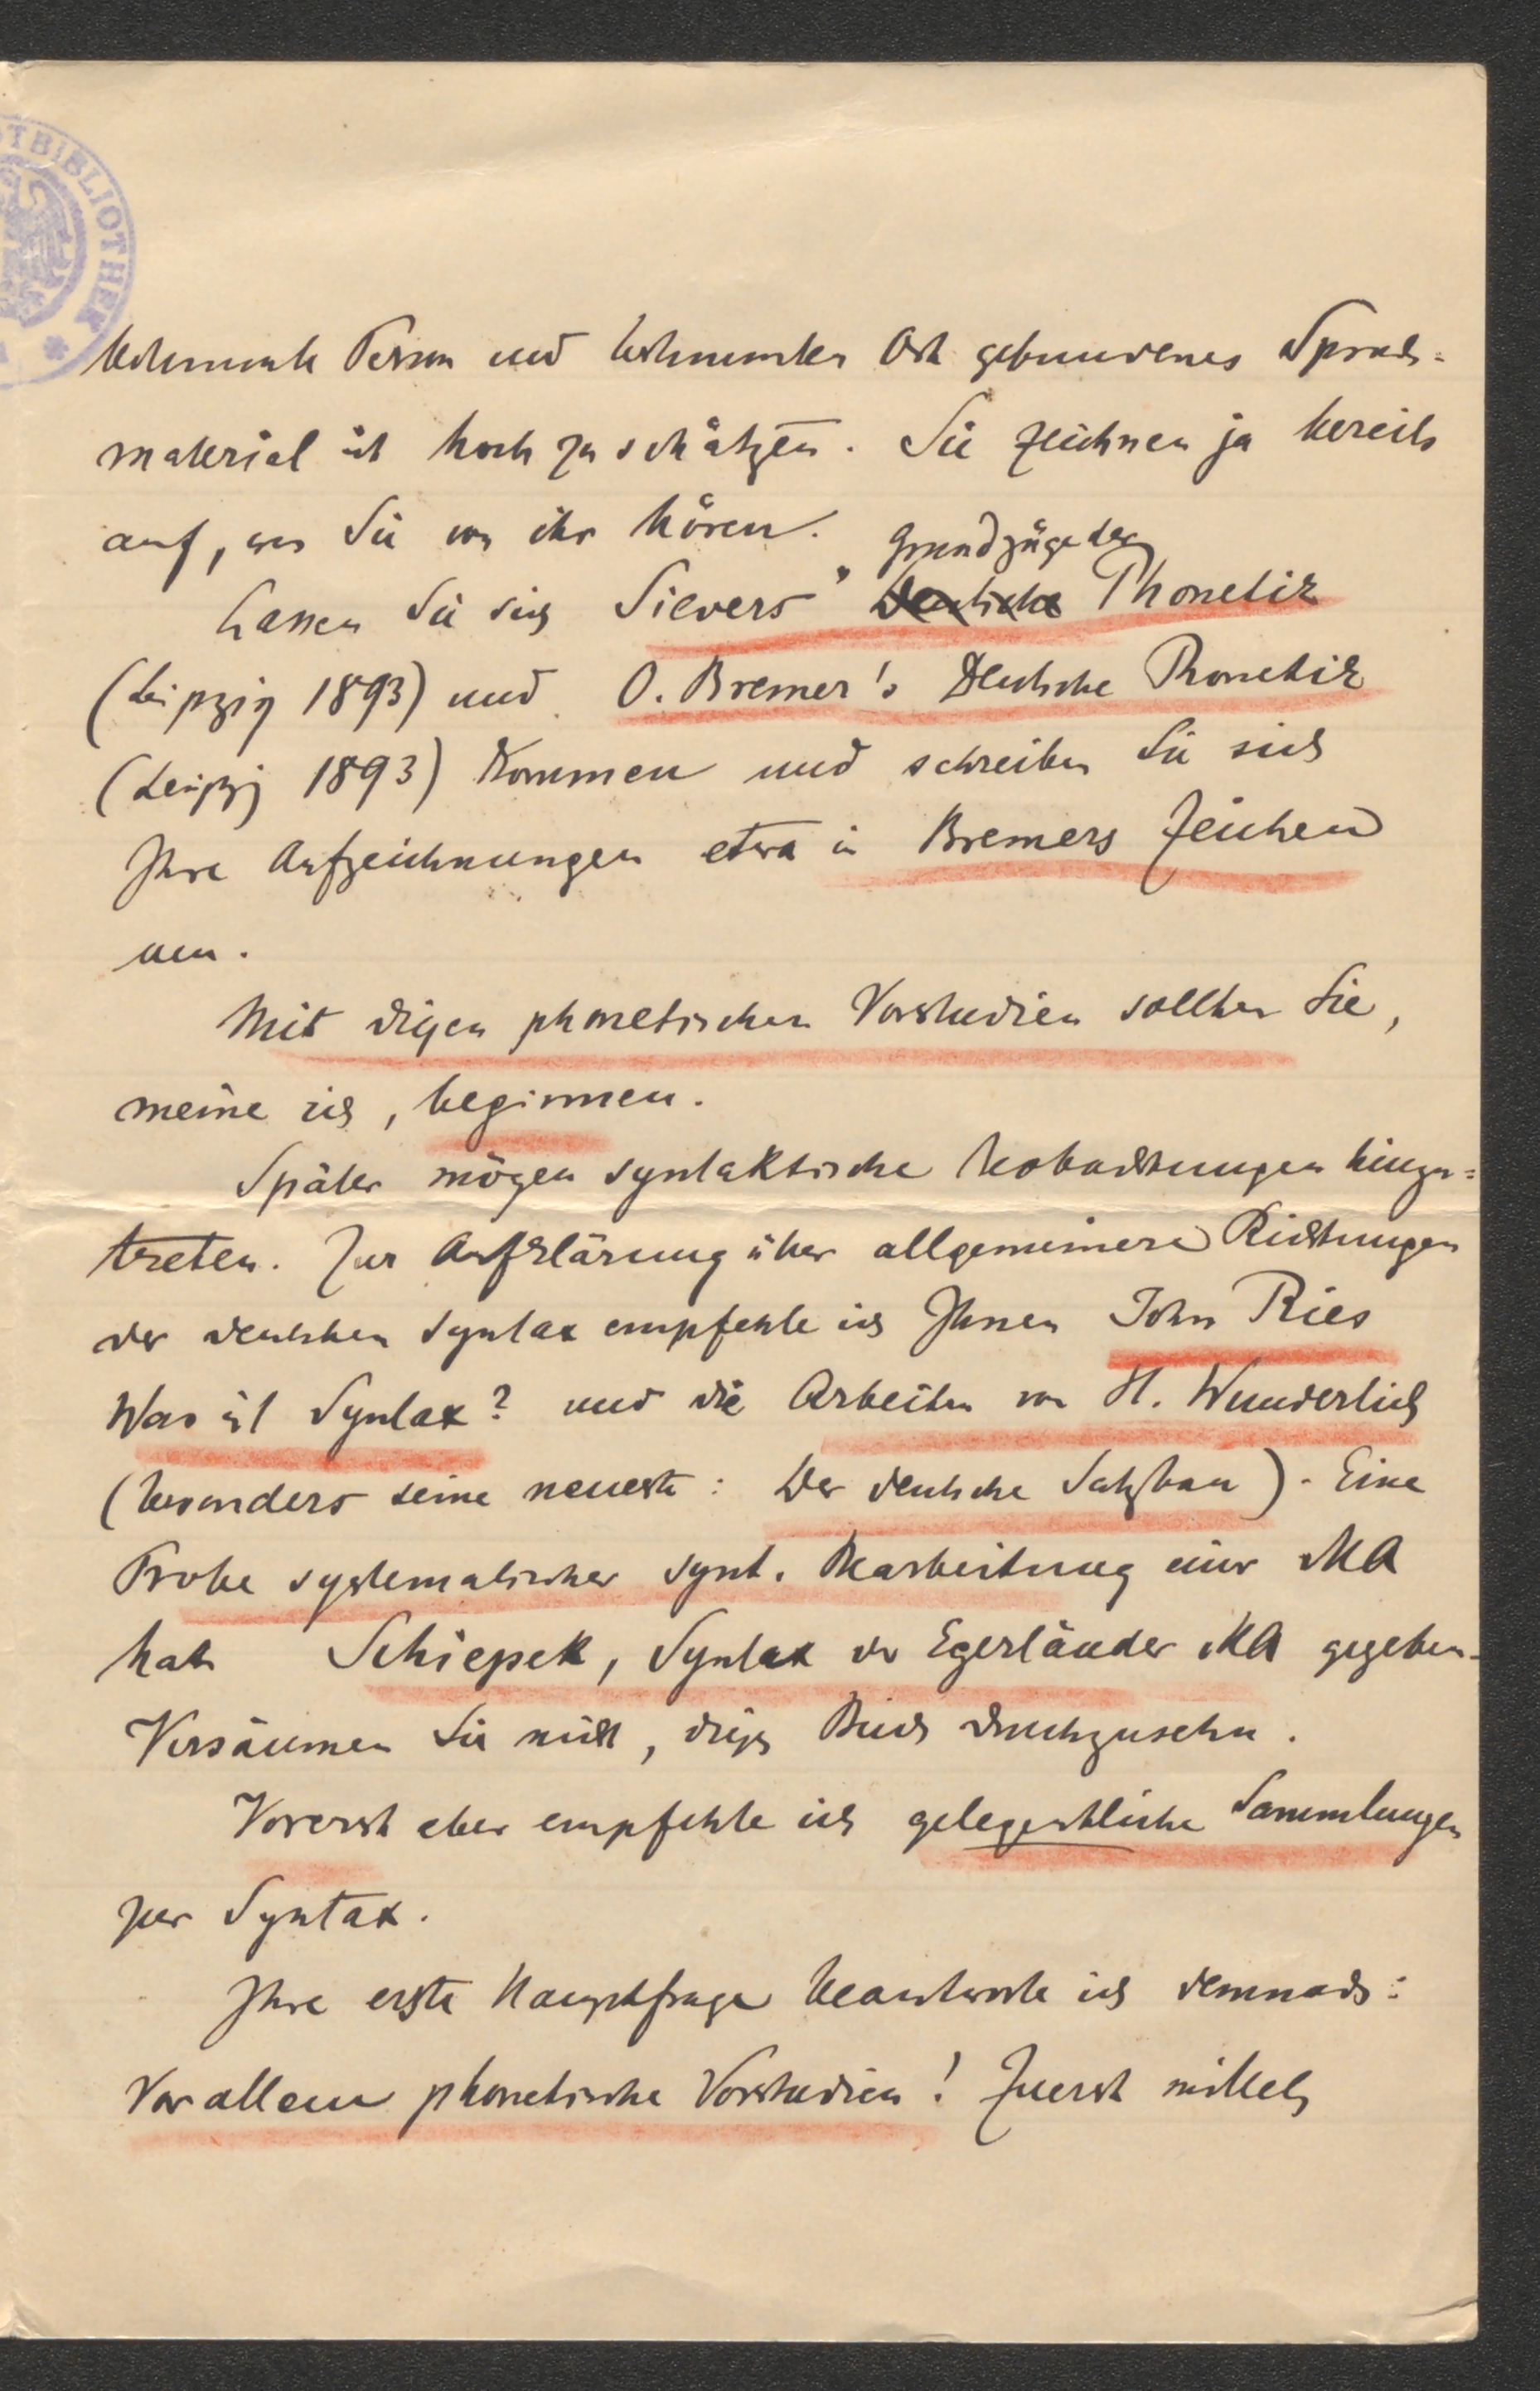 TBIBLIOTHEK
bestimmte Person und bestimmten Ort gebundenes Sprach-
material ist hoch zu schätzen. Sie zeichnen ja bereits
auf, was Sie von ihr hören.
Grundzüge der
Lassen Sie sich Sievers' Deutsche Phonetik
(Leipzig 1893) und O. Bremer's Deutsche Phonetik
(Leipzig 1893) kommen und schreiben Sie sich
Ihre Aufzeichnungen etwa in Bremers Zeichen
um.
Mit diesen phonetischen Vorstudien sollten Sie,
meine ich, beginnen.
Später mögen syntaktische Beobachtungen hinzu-
treten. Zur Aufklärung über allgemeinere Richtungen
der deutschen Syntax empfehle ich Ihnen John Ries
Was ist Syntax? und die Arbeiten von H. Wunderlich
(besonders seine neueste: Der deutsche Satzbau). Eine
Probe systematischer synt. Bearbeitung einer MA
hat Schiepek, Syntax der Egerländer MA gegeben.
Versäumen Sie nicht, dieses Buch durchzusehn.
Vorerst aber empfehle ich gelegentliche Sammlungen
zur Syntax.
Ihre erste Hauptfrage beantworte ich demnach:
Vor allem phonetische Vorstudien! Zuerst mittels